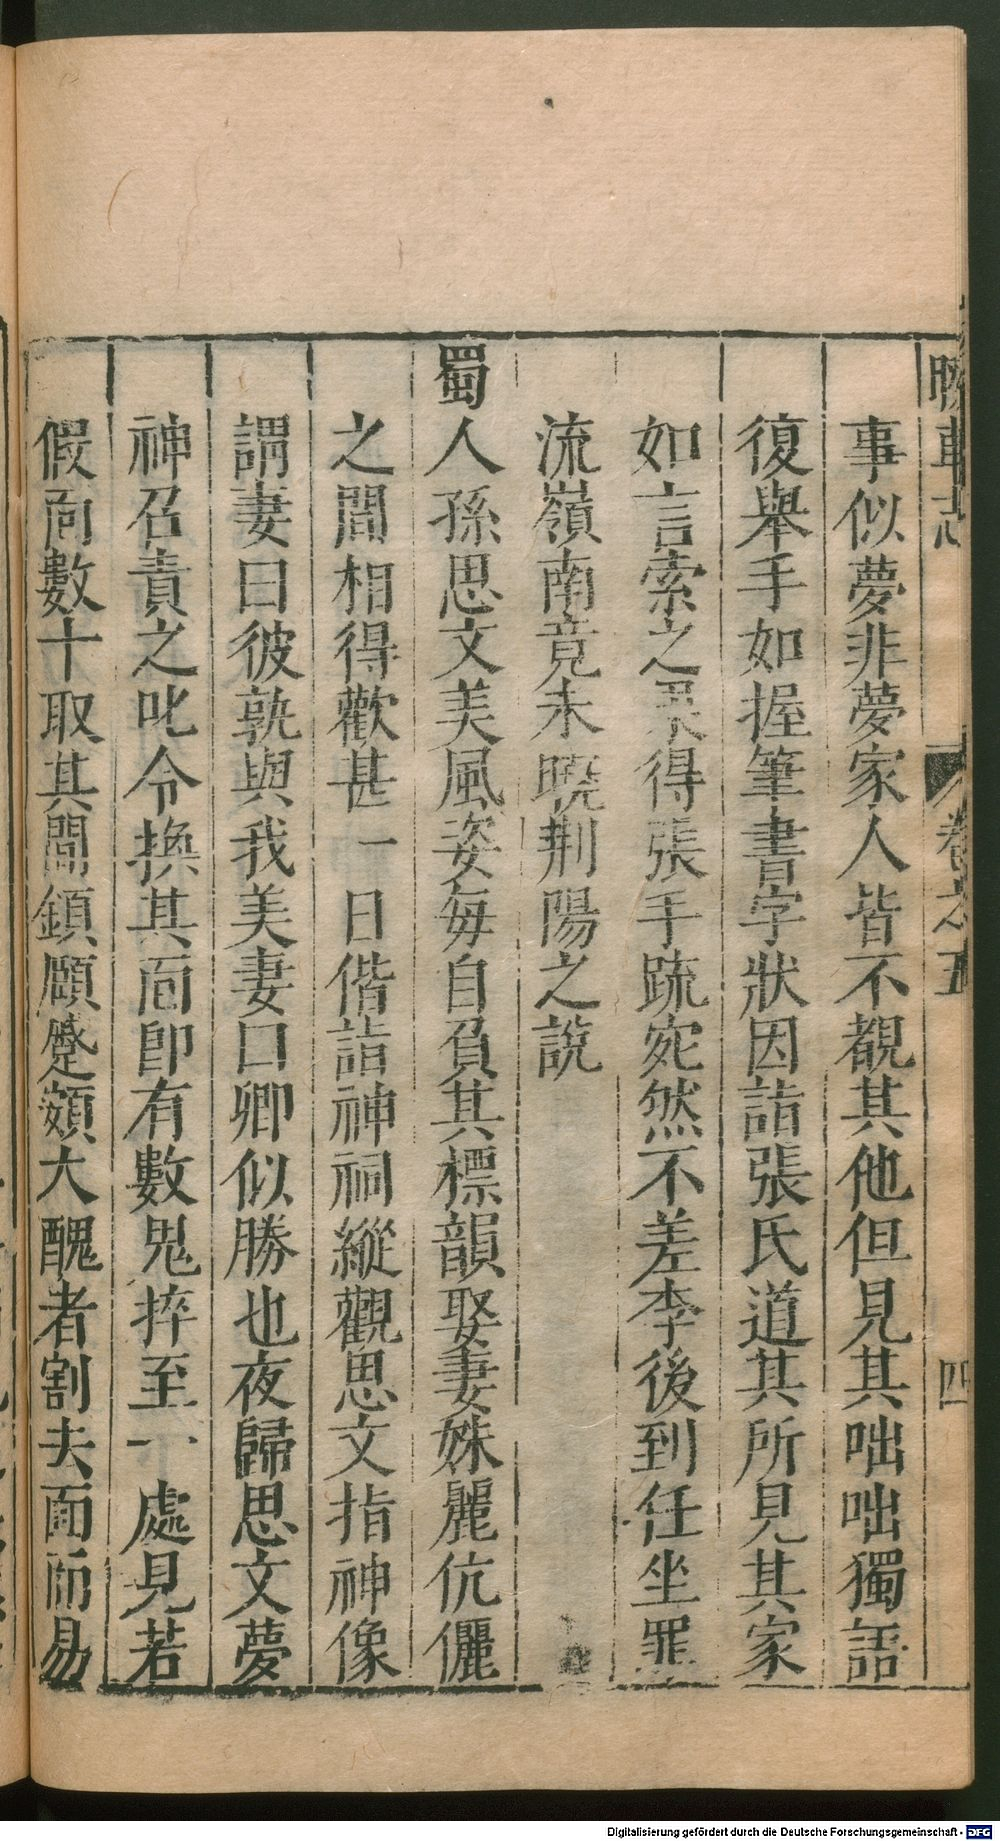 睽車志 卷之五 四
事似夢非夢家人皆不覩其他但見其咄咄獨語
復舉手如握筆書字狀因詣張氏道其所見其家
如言索之果得張手疏宛然不差李後到任坐罪
流嶺南竟未曉荆陽之說
蜀人孫思文美風姿每自負其標韻娶妻姝麗伉儷
之間相得歡甚一日偕詣神祠縱觀思文指神像
謂妻曰彼孰與我美妻口卿似勝也夜歸思文夢
神召責之叱令換其面卽有數鬼捽至一處見若
假面數十取其闊鎮願蹙頞大醜者割夫面而易
Digitalisierung gefördert durch die Deutsche Forschungsgemeinschaft - DFG